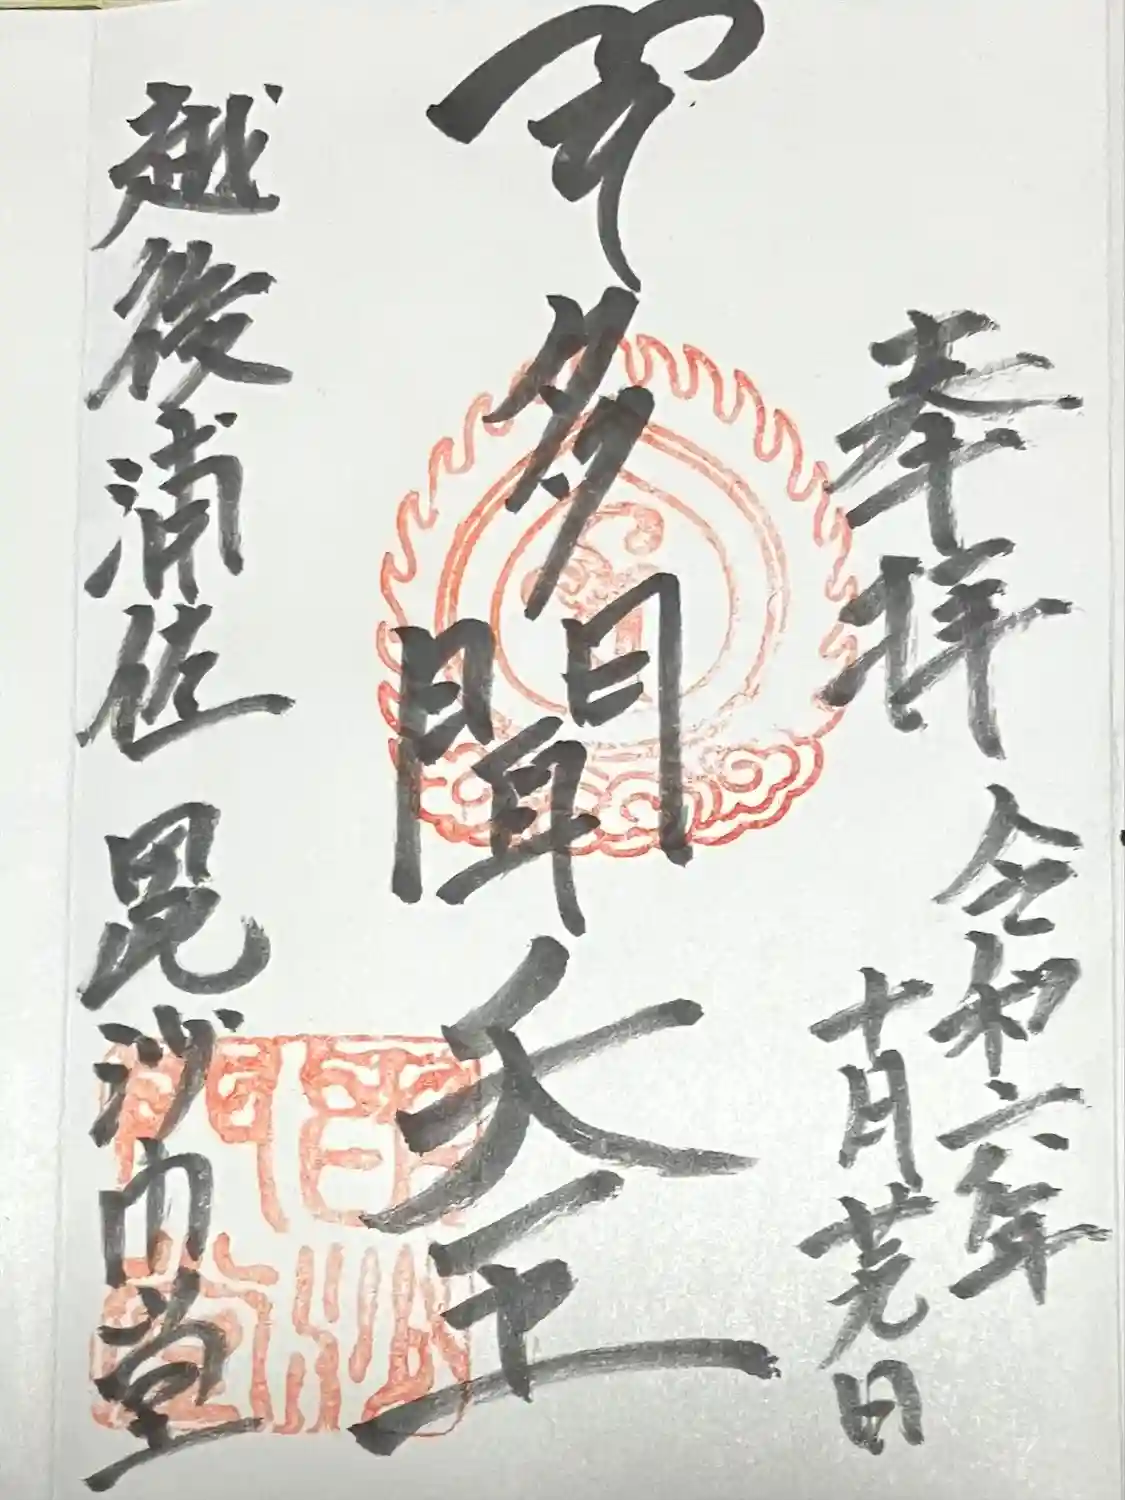 奉拝
令和六年
十月
日
多聞天王
越後浦佐 毘沙門堂
毘沙門堂